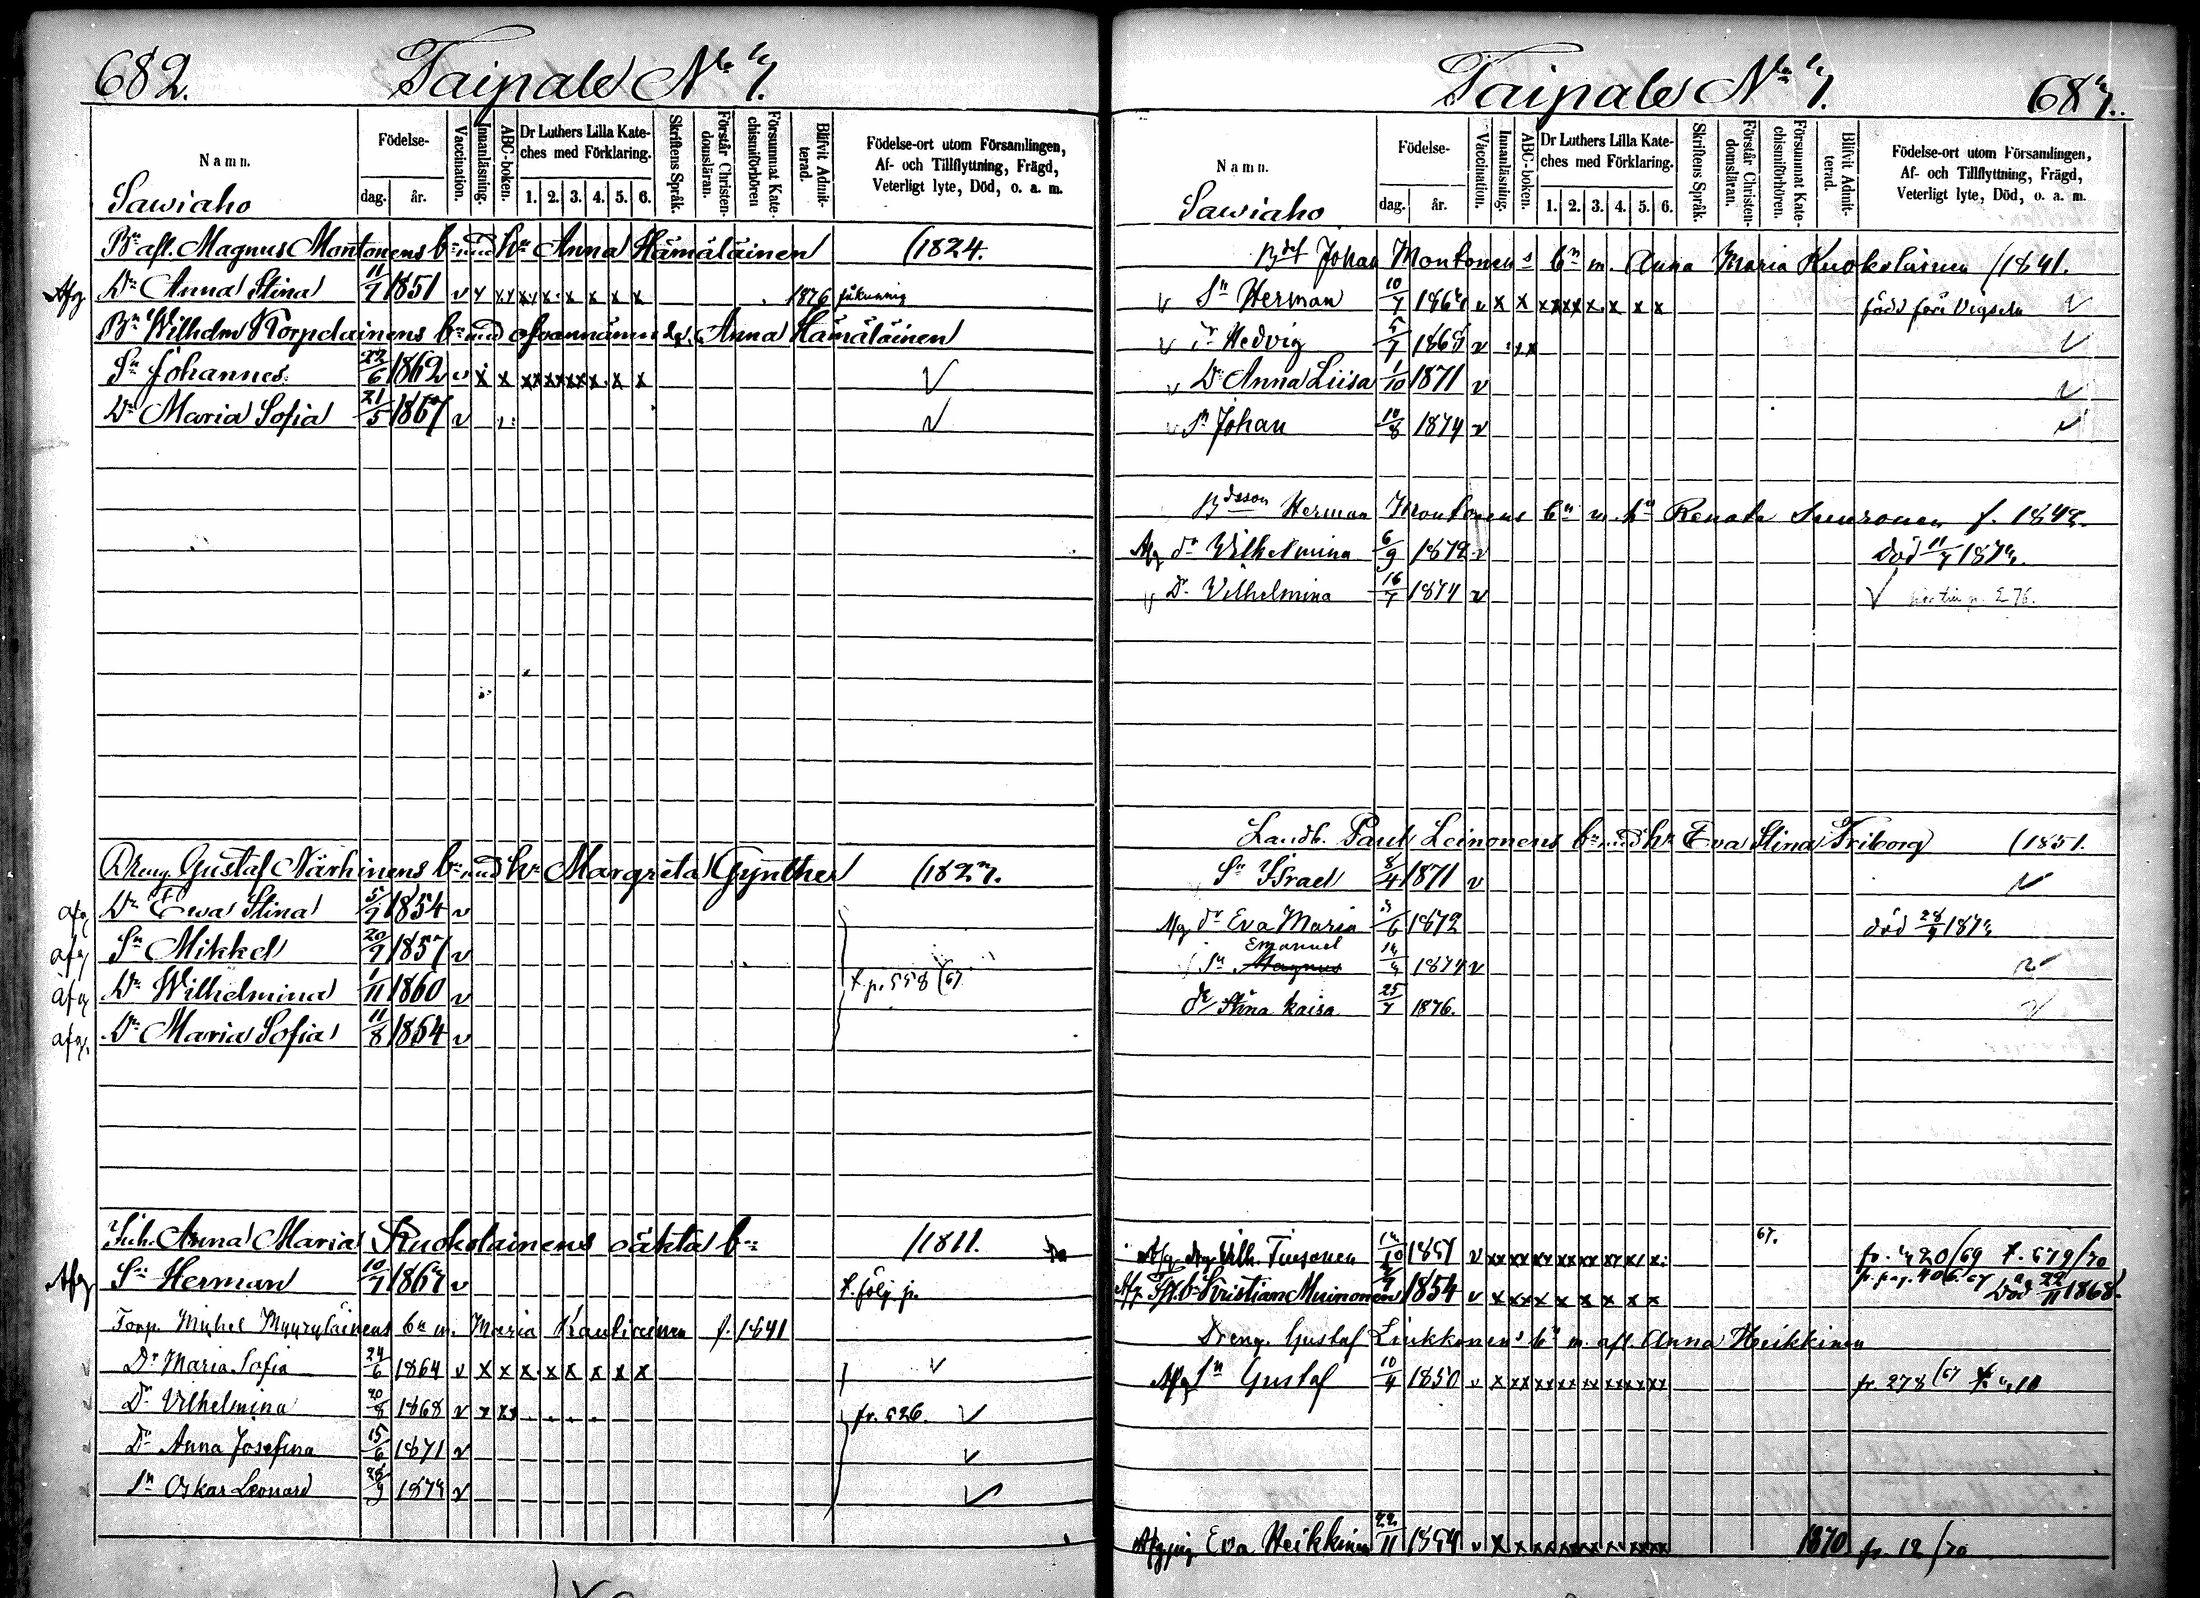 682.
Taipale N:o 7.
Namn.
Födelse-
dag.
år.
Vaccination.
Innanläsning.
ABC-boken.
Dr Luthers Lilla Kate-
ches med Förklaring.
1. 2. 3. 4. 5. 6.
Skriftens Språk.
Förstår Christen-
domsläran.
Försummat Kate-
chismiförhören
Blifvit Admit-
terad.
Födelse-ort utom Församlingen,
Af- och Tillflyttning, Frägd,
Veterligt lyte, Död, o. a. m.
Sawiaho
Bn afl. Magnus Montonens bn med hu Anna Hämäläinen (1824.
Afg Dr Anna Stina 11/7 1851 v 1876
Bn Wilhelm Korpelainens bn med Anna Hämäläinen
Sn Johannes 22/6 1862 v x x x x x x x x x
Dr Maria Sofia 21/5 1867 v
Dreng Gustaf Närhinens bn med hu Margreta Gynther (1827.
afg Dr Ewa Stina 5/7 1854 v
afg Sn Mikkel 20/9 1857 v
afg Dr Wilhelmina 1/11 1860 v t. p. 558 (67
afg. Dr Maria Sofia 11/8 1864 v
Inh. Anna Maria Kuokolainens oäkta bn (1811.
Afg Sn Herman 10/7 1867 v t. följ. p.
Torp. Mickel Myyryläinens bn m. Maria Kautiainen f. 1841
Dr Maria Sofia 24/6 1864 v x x x x x x x x
Dr Vilhelmina 20/8 1868 v fr. 526.
Dr Anna Josefina 15/6 1871 v
Sn Oskar Leonard 1874 v
Taipale N:o 7.
687.
Namn.
Födelse-
dag.
år.
Vaccination.
Innanläsning.
ABC-boken.
Dr Luthers Lilla Kate-
ches med Förklaring.
1. 2. 3. 4. 5. 6.
Skriftens Språk.
Förstår Christen-
domsläran.
Försummat Kate-
chismiförhören.
Blifvit Admit-
terad.
Födelse-ort utom Församlingen,
Af- och Tillflyttning, Frägd,
Veterligt lyte, Död, o. a. m.
Sawiaho
Johan Montonens bn m. Anna Maria Kuokolainen (1841.
v Sn Herman 10/7 1867 v född före Vigseln
v Dr Hedvig 5/7 1869 v
v Dr Anna Liisa 1/10 1871 v
v Sn Johan 10/8 1874 v
Bdsson Herman Montonens bn m. hu Renata Suuronen f. 1848.
Afg dr Wilhelmina 6/9 1872 v Död 11/7 1874.
v Dr Vilhelmina 16/7 1874 v
Landb. Paul Leinonens bn med hu Eva Stina Friborg (1851.
Sn Israel 8/4 1871 v
Afg dr Eva Maria 1872
Emanuel
Sn Magnus 1874 v
dr Stina Kaisa 25/7 1876.
Afg drg Vilh. Tuisonen 1851 v 67. t. 679/70
Afg Kristian Muinonen 1854 v Död 22/11 1868.
Dreng. Gustaf Liukkonens bn m. afl. Anna Heikkinen
Afg Sn Gustaf 10/4 1850 v fr. 278 (67
Eva Heikkinen 22/11 1854 v 1870 fr. 12/70